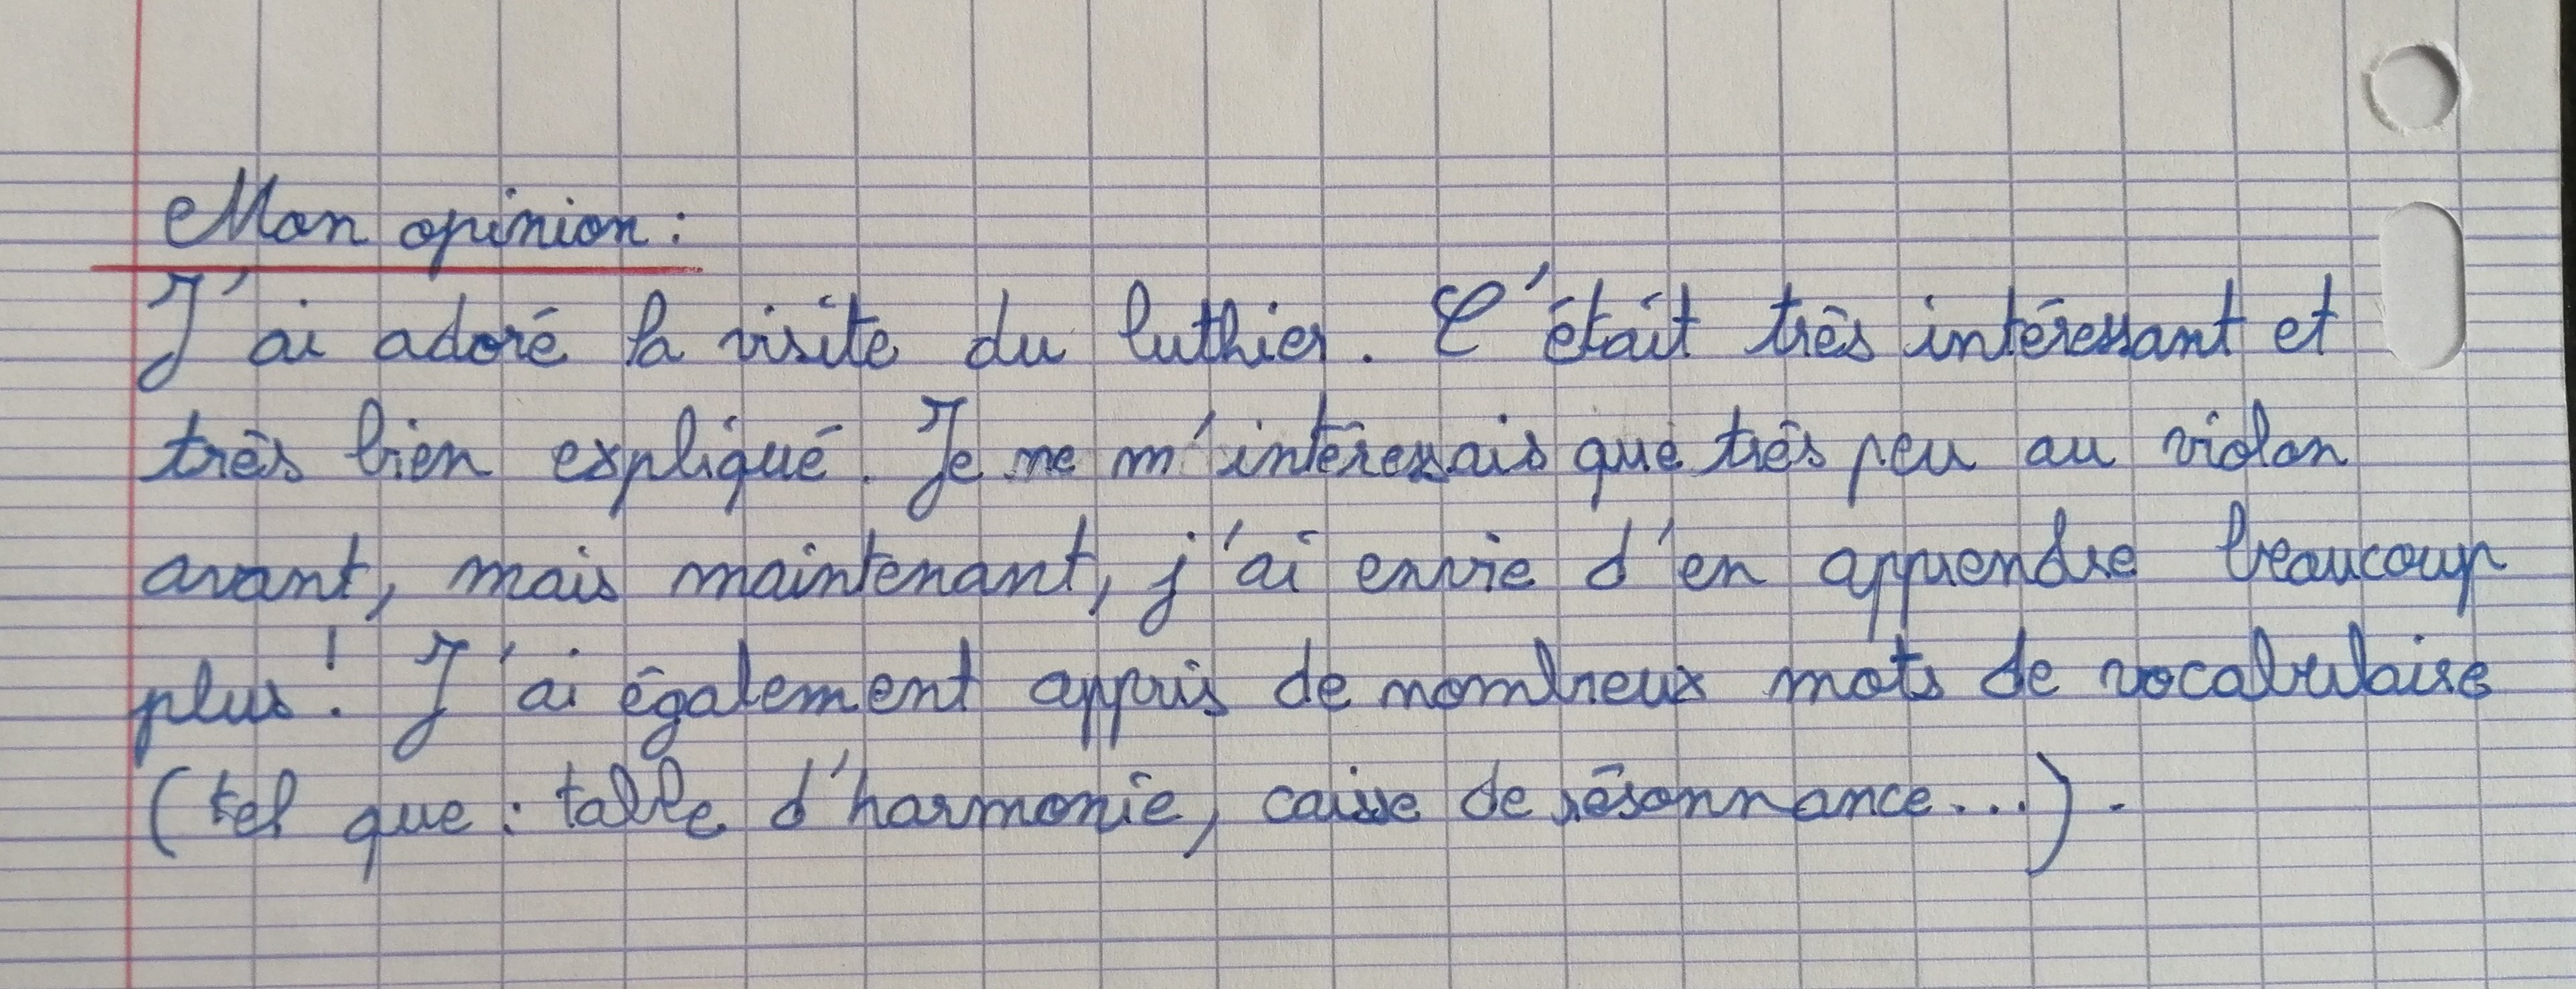 Mon opinion :
J'ai adoré la visite du luthier. C'était très intéressant et
très bien expliqué. Je ne m'intéressais que très peu au violon
avant, mais maintenant, j'ai envie d'en apprendre beaucoup
plus ! J'ai également appris de nombreux mots de vocabulaire
(tel que : table d'harmonie, caisse de résonnance...).